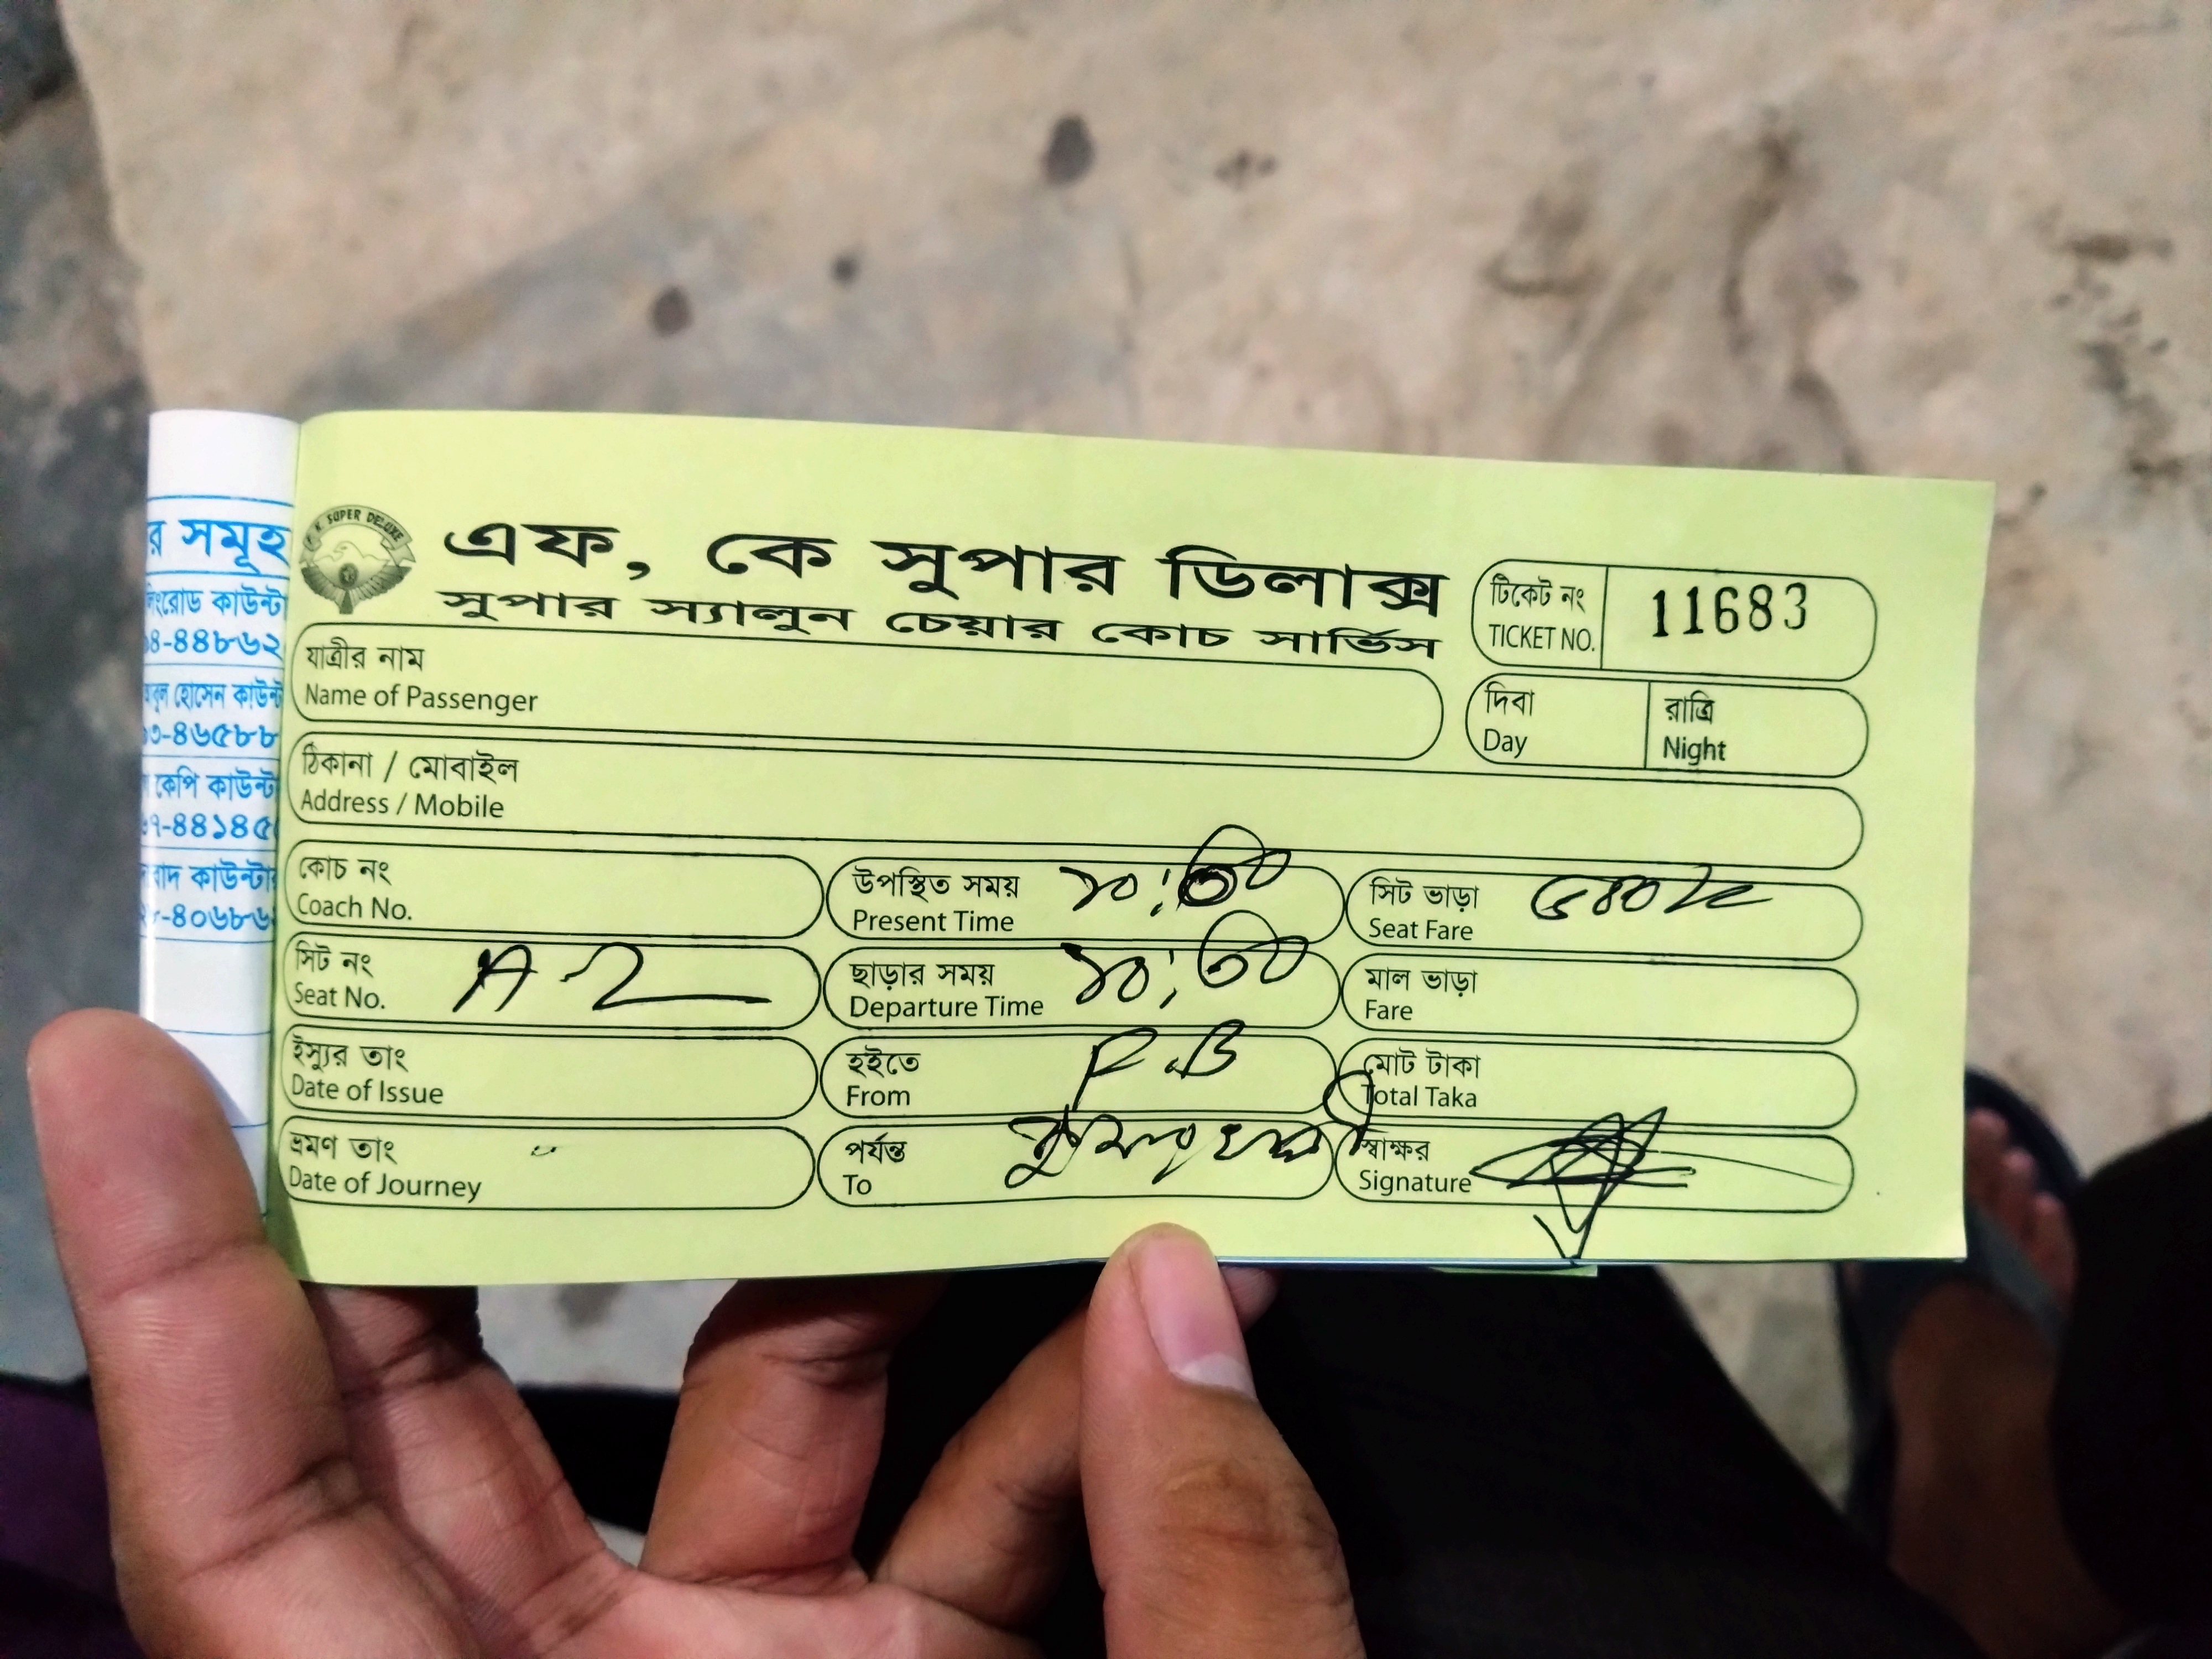 র সমূহ
কাউন্টা
৪-৪৪৮৬২
হোসেন কাউন্ট
৩-৪৬৫৮৮
কেপি কাউন্ট
৭-৪৪১৪৫
বাদ কাউন্টার
-৪০৬৮৬
K. SUPER DELUXE
এফ, কে সুপার ডিলাক্স
সুপার স্যালুন চেয়ার কোচ সার্ভিস
টিকেট নং
TICKET NO.
11683
যাত্রীর নাম
Name of Passenger
দিবা
Day
রাত্রি
Night
ঠিকানা / মোবাইল
Address / Mobile
কোচ নং
Coach No.
উপস্থিত সময়
Present Time
সিট ভাড়া
Seat Fare
সিট নং
Seat No.
A-2
ছাড়ার সময়
Departure Time
১০:৩০
মাল ভাড়া
Fare
ইস্যুর তাং
Date of Issue
হইতে
From
P.B
মোট টাকা
Total Taka
ভ্রমণ তাং
Date of Journey
পর্যন্ত
To
স্বাক্ষর
Signature